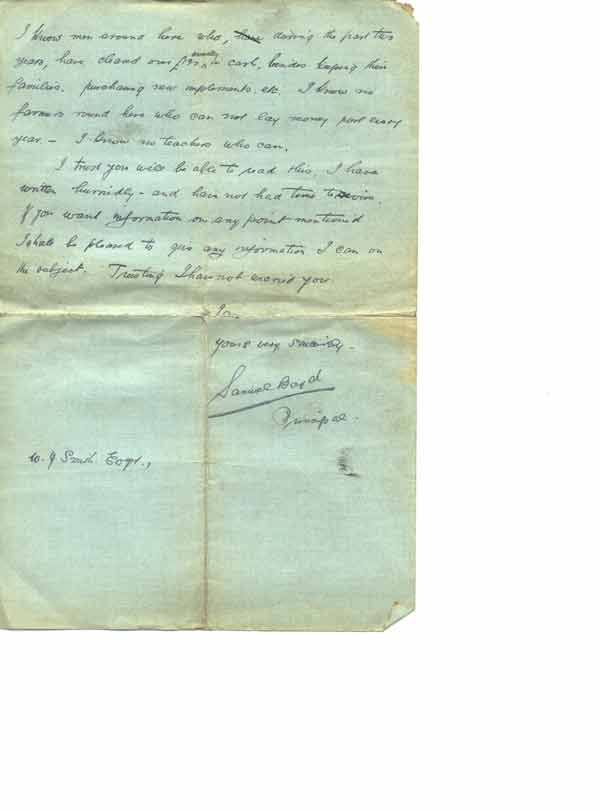 I know men around here who, during the past two
years, have cleared over in cash, besides keeping their
families, purchasing new implements, etc. I know no
farmers round here who can not lay money past every
year. — I know no teachers who can.
I trust you will be able to read this. I have
written hurriedly — and have not had time to
If you want information on any point mentioned
I shall be pleased to give any information I can on
the subject. Trusting I have not wearied you
I am,
yours very sincerely —
Samuel Boyd
Principal.
W. J Smith Esqr.,